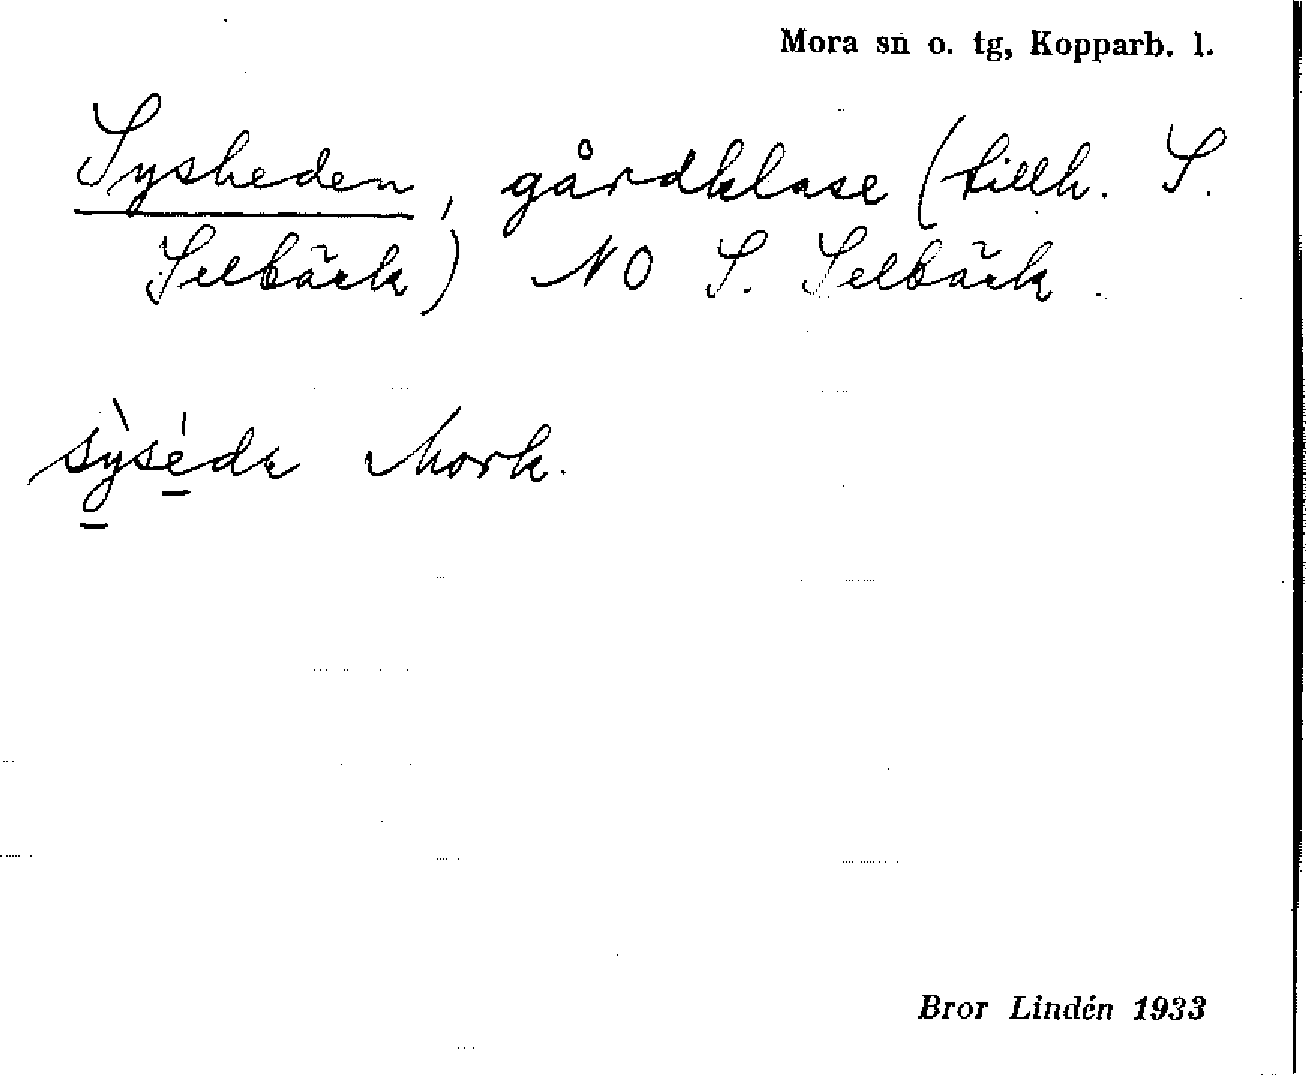 Mora sn o. tg, Kopparb. l.
Sysheden, gårdklase (tillh. S.
Selbäck) NO S. Selbäck.
sỳséda Mork.
Bror Lindén 1933